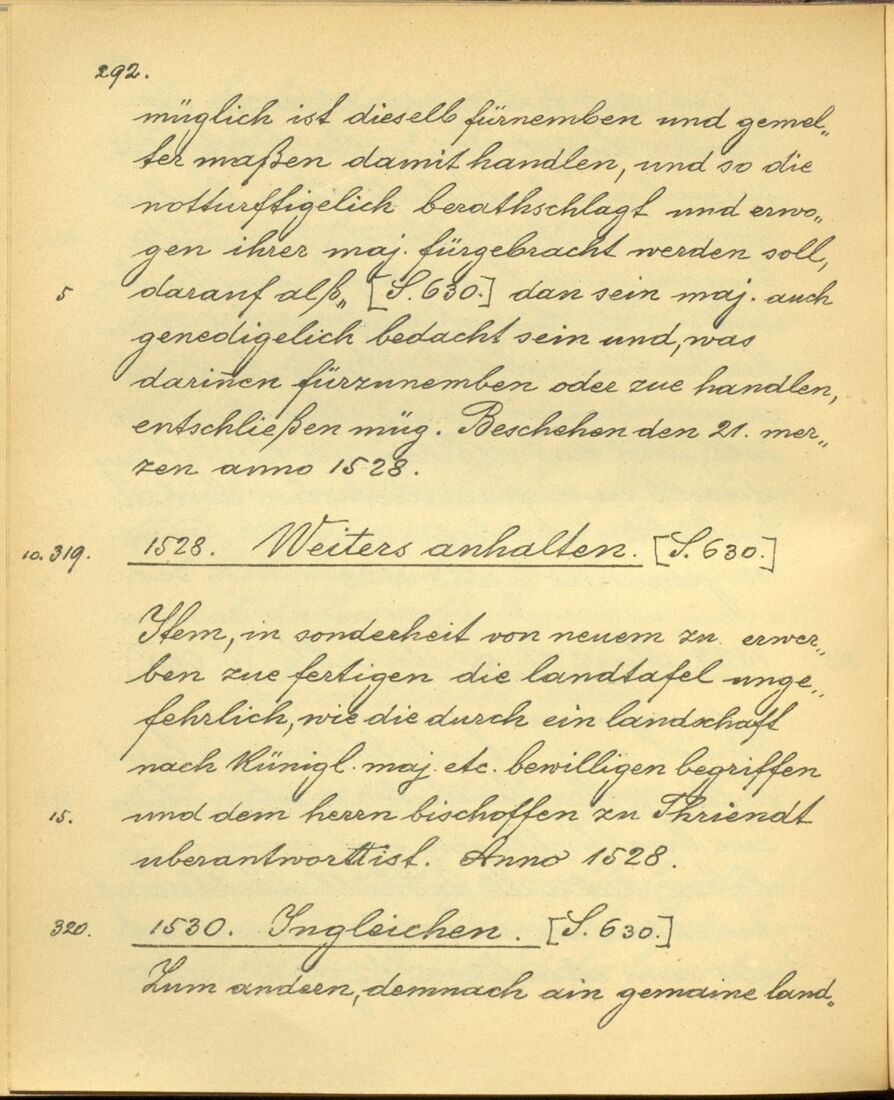 292.
müglich ist dieselb fürnemben und gemel„
ter maßen damit handlen, und so die
notturftigelich berathschlagt und erwo„
gen ihrer maj. fürgebracht werden soll,
5 darauf alß„ [S. 630.] dan sein maj. auch
genedigelich bedacht sein und, was
dariñen fürzunemben oder zue handlen,
entschließen müg. Beschehen den 21. mer„
zen anno 1528.
10. 319. 1528. Weiters anhalten. [S. 630.]
Item, in sonderheit von neuem zu erwer„
ben zue fertigen die landtafel unge„
fehrlich, wie die durch ein landschaft
nach Künigl. maj. etc. bewilligen begriffen
15. und dem herrn bischoffen zu Thriendt
uberantwortt ist. Anno 1528.
320. 1530. Ingleichen. [S. 630.]
Zum andern, demnach ain gemaine land„